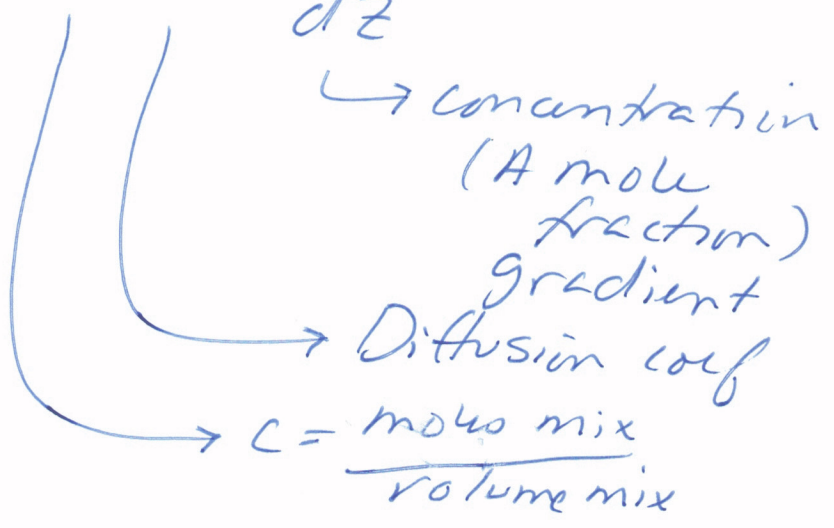 dz
concentration
(A mole
fraction)
gradient
Diffusion coef
c = moles mix
volume mix